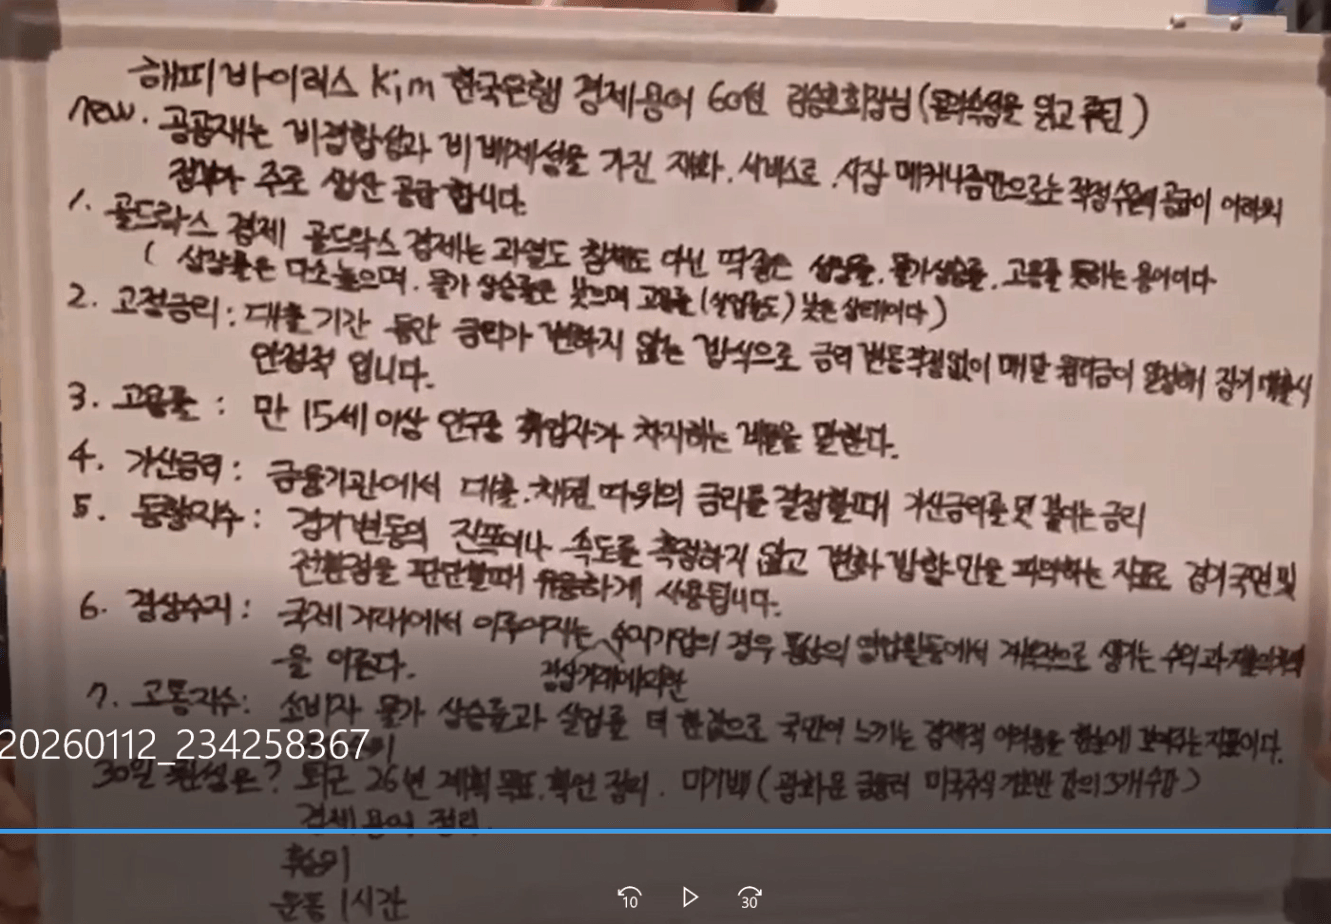 해피바이러스 Kim 한국은행 경제용어 60선 김승호회장님 (돈의속성을 읽고 추천)
new. 공공재는 비경합성과 비배제성을 가진 재화.서비스로.시장 메커니즘만으로는 적정수준의 공급이 어려워
정부가 주로 생산 공급 합니다.
1. 골드락스 경제 골드락스 경제는 과열도 침체도 아닌 딱좋은 성장률.물가상승률.고용률 뜻하는 용어이다
( 성장률은 다소높으며. 물가 상승률은 낮으며 고용률(실업률도) 낮은 상태이다)
2. 고정금리 : 대출기간 동안 금리가 변하지 않는 방식으로 금리 변동걱정없이 매달 원리금이 일정해서 장기 대출시
안정적 입니다.
3. 고용률 : 만 15세 이상 인구중 취업자가 차지하는 비율을 말한다.
4. 가산금리 : 금융기관에서 대출.채권 따위의 금리를 결정할때 가산금리를 덧 붙이는 금리
5. 동행지수 : 경기변동의 진폭이나 속도를 측정하지 않고 변화 방향만을 파악하는 지표로 경기국면 및
전환점을 판단할때 유용하게 사용됩니다.
6. 경상수지 : 국제거래에서 이루어지는 경상거래에의한 수지기업의 경우 통상의 영업활동에서 계속적으로 생기는 수익과 지출의차액
을 이른다.
7. 고통지수 : 소비자 물가 상승률과 실업률 더한값으로 국민이 느끼는 경제적 어려움을 한눈에 보여주는지표이다.
20260112_234258367
30일 완성은? 퇴근 26년 계획 목표.확언 정리. 미기백 (광화문 금융러 미국주식 기초반 강의 3개 수강)
경제용어 정리.
운동 1시간
10
30